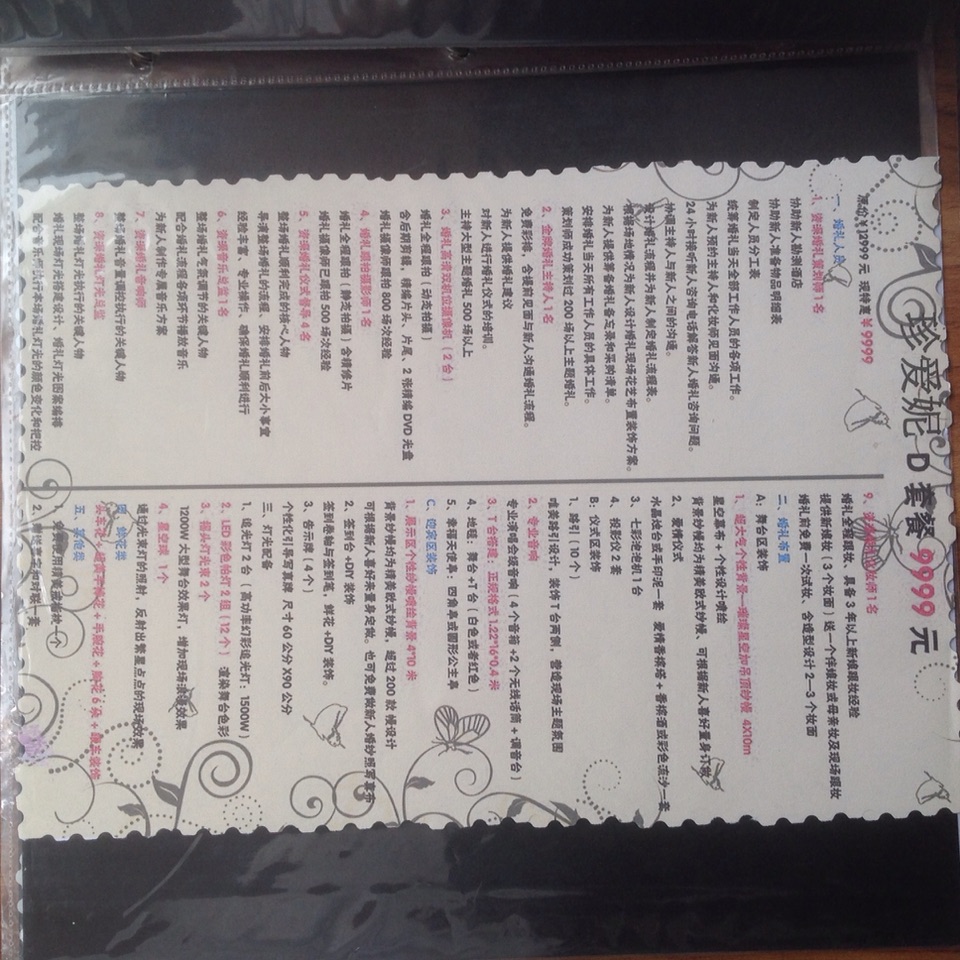 珍爱妮 D 套餐 9999 元
原价￥12999 元 现特惠￥9999
一、婚礼人员
1、资深婚礼策划师1名
协助新人勘测酒店
协助新人准备物品明细表
制定人员分工表
统筹婚礼当天全部工作人员的各项工作。
为新人预约主持人和化妆师见面沟通。
24 小时接听新人咨询电话解答新人婚礼咨询问题。
协调主持人与新人之间的沟通。
设计婚礼流程为新人制定婚礼流程表。
根据场地情况为新人设计婚礼现场花艺布置装饰方案。
为新人提供筹备备婚礼备忘录和采购清单。
安排婚礼当天所有工作人员的具体工作。
策划师成功策划过 200 场以上主题婚礼。
2、金牌婚礼主持人1名
免费彩排，含提前见面与新人沟通婚礼流程。
为新人提供婚礼建议
对新人进行婚礼仪式的培训。
主持大型主题婚礼 500 场以上
3、婚礼高清双机位摄像机（2 台）
婚礼全程跟拍（动态拍摄）
含后期剪辑，精编片头、片尾，2 张精编 DVD 光盘
婚礼摄像师跟拍 800 场次经验
4、婚礼跟拍摄影师1名
婚礼全程跟拍（静态拍摄）含精修片
婚礼摄像师已跟拍 500 场次经验
5、资深婚礼仪式督导 4 名
整场婚礼顺利完成的核心人物
早演整场婚礼的流程，安排婚礼前后大小事宜
经验丰富、专业操作、确保婚礼顺利进行
6、资深音乐总监1名
整场婚礼气氛调节的关键人物
配合婚礼流程各项环节播放音乐
为新人制作专属音乐方案
7、资深婚礼音响师
整场婚礼音量调控执行的关键人物
8、资深婚礼灯光总监
整场婚礼灯光执行的关键人物
婚礼现场灯光搭建设计、婚礼灯光图案编排
配合音乐师执行本场婚礼灯光的颜色变化和把控
9、资深婚礼化妆师1名
婚礼全程跟妆，具备 3 年以上新娘跟妆经验
提供新娘妆（3 个妆面）送一个伴娘妆或母亲妆及现场跟妆
婚礼前免费一次试妆、含造型设计 2—3 个妆面
二、婚礼布置
A：舞台区装饰
1、超大气个性背景—璀璨星空加吊顶纱幔 4X10m
星空幕布 + 个性设计喷绘
背景纱幔均为精美欧式纱幔、可根据新人喜好量身订做
2、爱情仪式
水晶烛台或手印泥一套 爱情香槟塔 + 香槟酒或彩色流沙一套
3、七彩泡泡机 1 台
4、投影仪 2 套
B：仪式区装饰
1、路引（10 个）
唯美路引设计，装饰 T 台两侧，营造现场主题氛围
2、专业音响
专业演唱会级音响（4 个音箱 +2 个无线话筒 + 调音台）
3、T 台搭建：正规格式 1.22*16*0.4 米
4、地毯：舞台 +T 台（白色或者红色）
5、幸福天使亭：四角亭或圆形公主亭
C、迎宾区装饰
1、展示区个性纱幔喷绘背景 4*10 米
背景纱幔均为精美欧式纱幔，超过 200 款幔设计
可根据新人喜好来量身定做。也可免费做新人婚纱照写真布
2、签到台 +DIY 装饰
签到卷轴与签到笔，鲜花 +DIY 装饰。
3、告示牌（4 个）
个性指引导写真牌 尺寸 60 公分 X90 公分
三、灯光配备
1、追光灯 1 台 （高功率幻彩追光灯：1500W）
2、LED 彩色帕灯 2 组（12 个）渲染舞台色彩
3、摇头灯光束 2 个
1200W 大型舞台效果灯，增加现场浪漫效果
4、星空球 1 个
通过光束灯的照射，反射出繁星点点的现场效果
四、鲜花类
头车花 + 新娘手捧花 + 手腕花 + 胸花 6 朵 + 婚车装饰
五、其他类